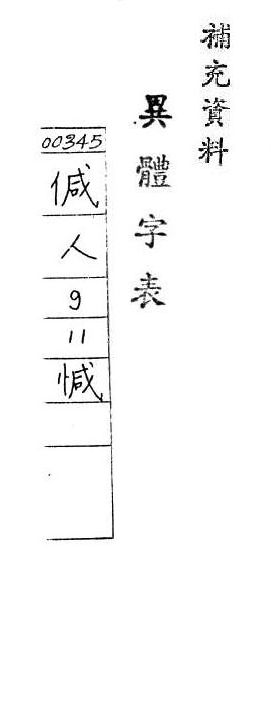 補充資料
異體字表
00345
㑘
人
9
11
㦑